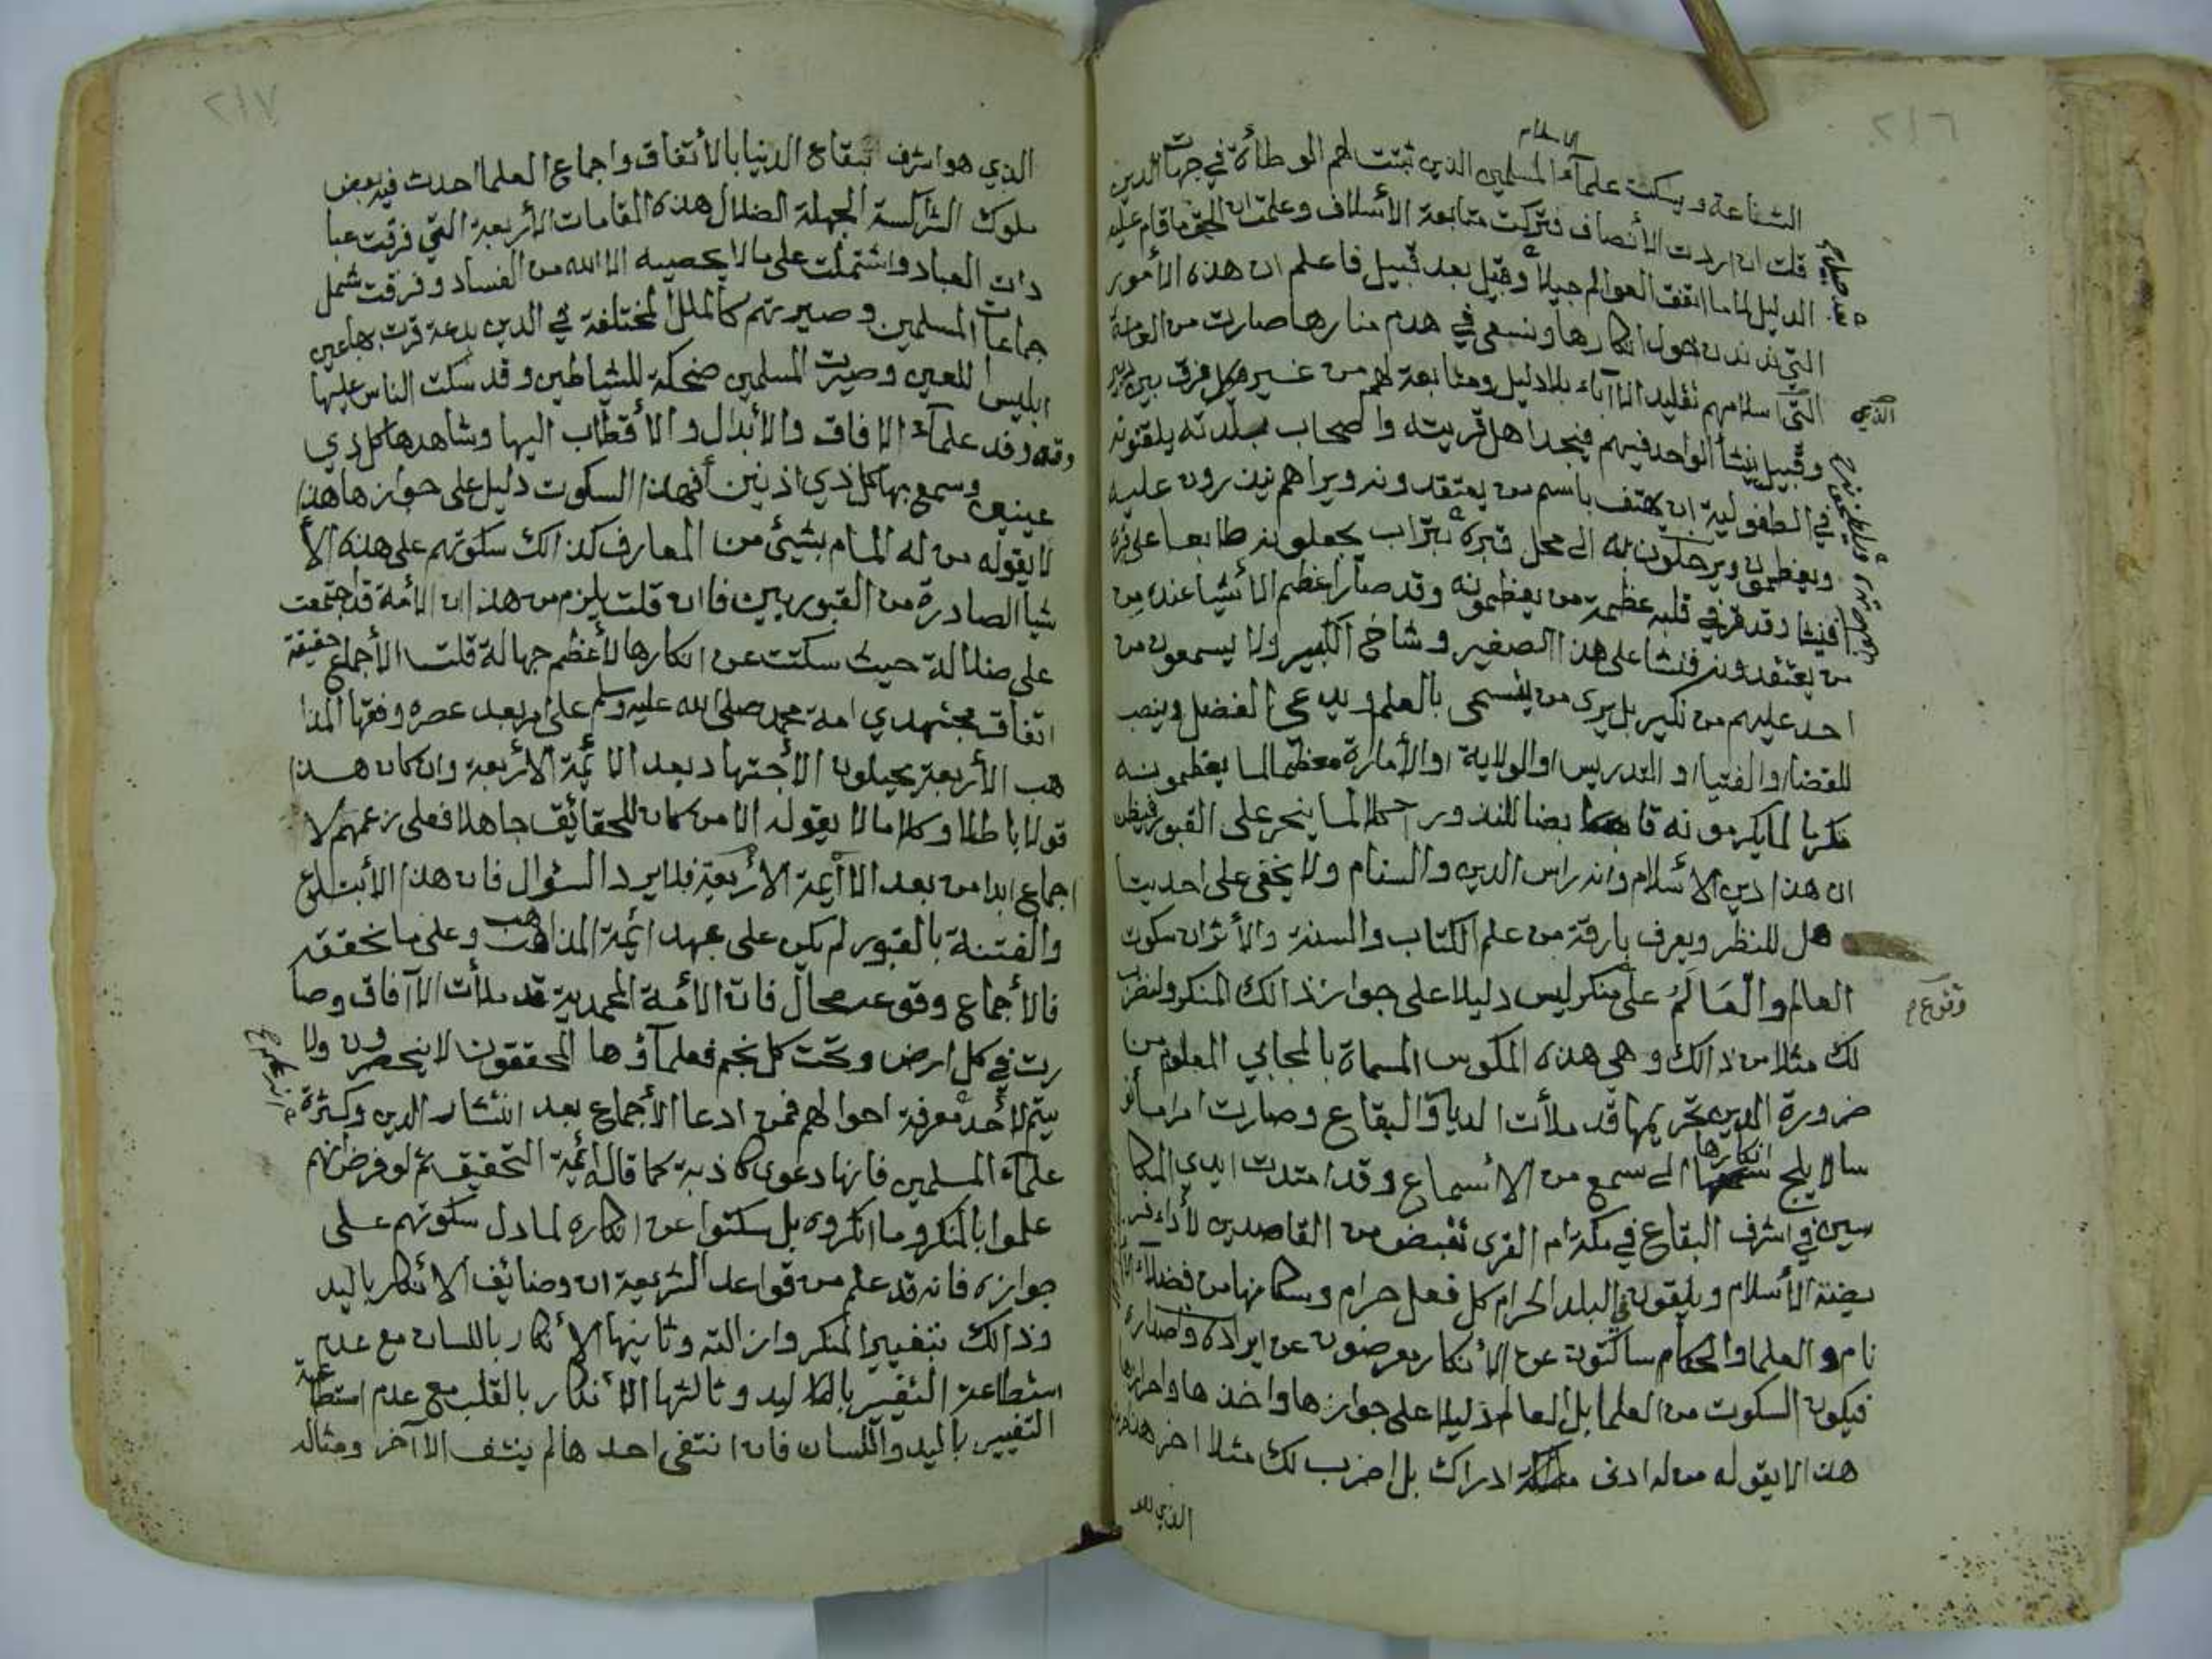 ٢١٦
الاسلام
الشناعة ويسكت علماء المسلمين الذين ثبتت لهم الوطأة في جهات الدين
قلت ان اردت الأنصاف وتركت متابعة الأسلاف وعلمت ان الحق ما قام عليه
الدليل لا ما اتفق العوالم جيلا وقبيل بعد قبيل فاعلم ان هذه الأمور
التي ندندن حول انكارها ونسعى في هدم منارها صارت من العامة
التي اسلامهم تقليد الاآباء بلا دليل ومتابعة لهم من غير فرق بين
الذي
وقبيل ينشأ الواحد فيهم فيجد اهل قريته واصحاب بلدته يلقنونه
في الطفولية ان يهتف باسم من يعتقدونه ويراهم ينذرون عليه
ويعظمونه ويرحلون به الى محل قبره بتراب يجعلونه طايعا على قبره
فينشا وقد قر في قلبه عظمة من يعظمونه وقد صار اعظم الأشيا عنده من
من يعتقدونه فنشا على هذا الصغير وشاخ الكبير ولا يسمعون من
احد عليهم من نكير بل يرى من يتسمى بالعلم ويدعي الفضل وينصب
للقضا والفتيا والتدريس او الولاية او الأمارة معظما لما يعظمونه
مكرما لما يكرمونه قابضا للنذور اكلا لما ينحر على القبور فيظن
ان هذا دين الأسلام وانه راس الدين والسنام ولا يخفى على احد يتا
هل للنظر ويعرف بارقة من علم الكتاب والسنة والأثر ان سكوت
العالم والعَالَم على منكر ليس دليلا على جواز ذالك المنكر ولنضرب
وقوع م
لك مثلا من ذالك وهي هذه المكوس المسماة بالمجابي المعلوم من
ضرورة الدين تحريمها قد ملأت الديار والبقاع وصارت امرا مأنو
سا لا يلج انكارها الى سمع من الأسماع وقد امتدت ايدي المكا
سين في اشرف البقاع في مكة ام القرى تقبض من القاصدين لأداء
فريضة الأسلام ويلقون في البلد الحرام كل فعل حرام وسكانها من فضلاء الأ
نام والعلما والحكام ساكتون عن الأنكار معرضون عن ايراده واصداره
فيكون السكوت من العلما بل العالم دليلا على جوازها واخذها واحرازها
هذا لا يقوله من له ادنى ادراك بل اضرب لك مثلا اخر هذا حرم
الذي هو
٢١٧
الذي هو اشرف بقاع الدنيا بالأتفاق واجماع العلما احدث فيه بعض
ملوك الشراكسة الجهلة الضلال هذه المقامات الأربعة التي فرقت عبا
دات العباد واشتملت على ما لا يحصيه الا الله من الفساد وفرقت شمل
جماعات المسلمين وصيرتهم كالملل المختلفة في الدين بدعة قرت بها عين
ابليس اللعين وصيرت المسلمين ضحكة للشياطين وقد سكت الناس عليها
ووفد علماء الافاق والأبدال والأقطاب اليها وشاهدها كل ذي
عينين وسمع بها كل ذي اذنين أفهذا السكوت دليل على جوازها هذا
لا يقوله من له المام بشيئ من المعارف كذالك سكوتهم على هذه الأ
شيا الصادرة من القبوريين فان قلت يلزم من هذا ان الأمة قد اجتمعت
على ضلالة حيث سكتت عن انكارها لأعظم جهالة قلت الأجماع حقيقة
اتفاق مجتهدي امة محمد صلى الله عليه وسلم على امر بعد عصره وفقها المذا
هب الأربعة يحيلون الأجتهاد بعد الائمة الأربعة وان كان هذا
قولا باطلا وكلاما لا يقوله الا من كان للحقائق جاهلا فعلى زعمهم لا
اجماع ابدا من بعد الأئمة الأربعة فلا يرد السؤال فان هذا الأبتداع
والفتنة بالقبور لم يكن على عهد ائمة المذاهب وعلى ما نحققه
فالأجماع وقوعه محال فان الأمة المحمدية قد ملأت الاآفاق وصا
رت في كل ارض وتحت كل نجم فعلماؤها المحققون لا ينحصرون ولا
يتم لأحد معرفة احوالهم فمن ادعا الأجماع بعد انتشار الدين وكثرة
علماء المسلمين فانها دعوى كاذبة كما قاله ائمة التحقيق ثم لو فرض انهم
علموا بالمنكر وما انكروه بل سكتوا عن انكاره لما دل سكوتهم على
جوازه فانه قد علم من قواعد الشريعة ان وضائف الأنكار باليد
وذالك بتغيير المنكر وازالته وثانيها الأنكار باللسان مع عدم
استطاعة التغيير باليد وثالثها الأنكار بالقلب مع عدم استطاعة
التغيير باليد واللسان فان انتفى احدها لم ينتف الاآخر ومثاله